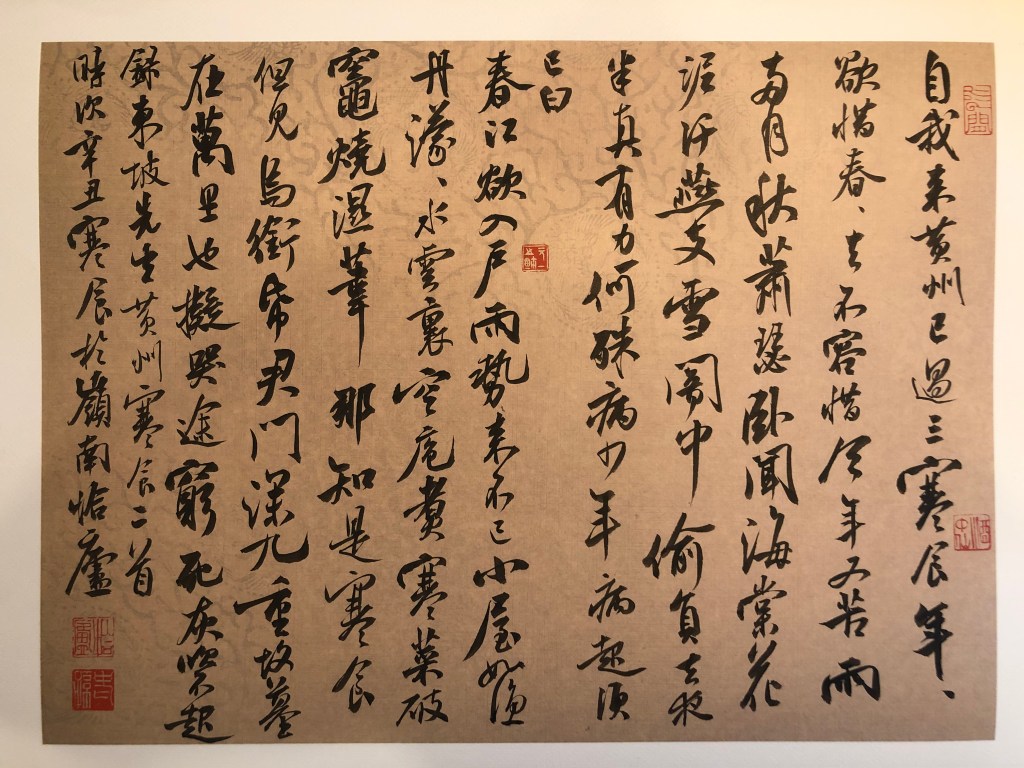 自我来黄州已過三寒食年、
欲惜春、去不容惜今年又苦雨
両月秋蕭瑟卧聞海棠花
泥汙燕支雪闇中偷負去夜
半真有力何殊病少年病起須
已白
春江欲入戶雨勢来不已小屋如漁
舟濛、水雲裏空庖煑寒菜破
竈燒濕葦那知是寒食
但見烏銜帋君門深九重墳墓
在萬里也擬哭途窮死灰吹不起
錄東坡先生黄州寒食二首
時次辛丑寒食於嶺南恰廬